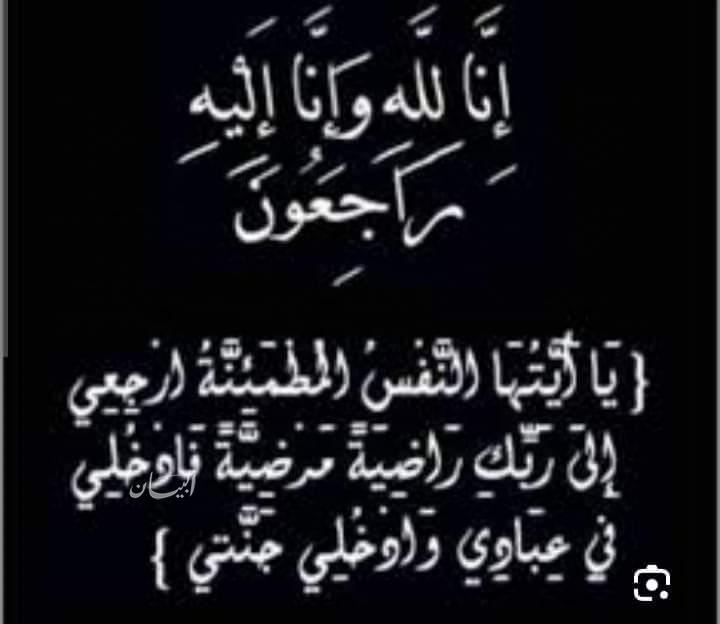 إِنَّا لِلَّهِ وَإِنَّا إِلَيْهِ
رَاجِعُونَ
{ يَا أَيَّتُهَا النَّفْسُ المُطْمَئِنَّةُ ارْجِعِي
إِلَى رَبِّكِ رَاضِيَةً مَرْضِيَّةً فَادْخُلِي
البيان
فِي عِبَادِي وَادْخُلِي جَنَّتِي }